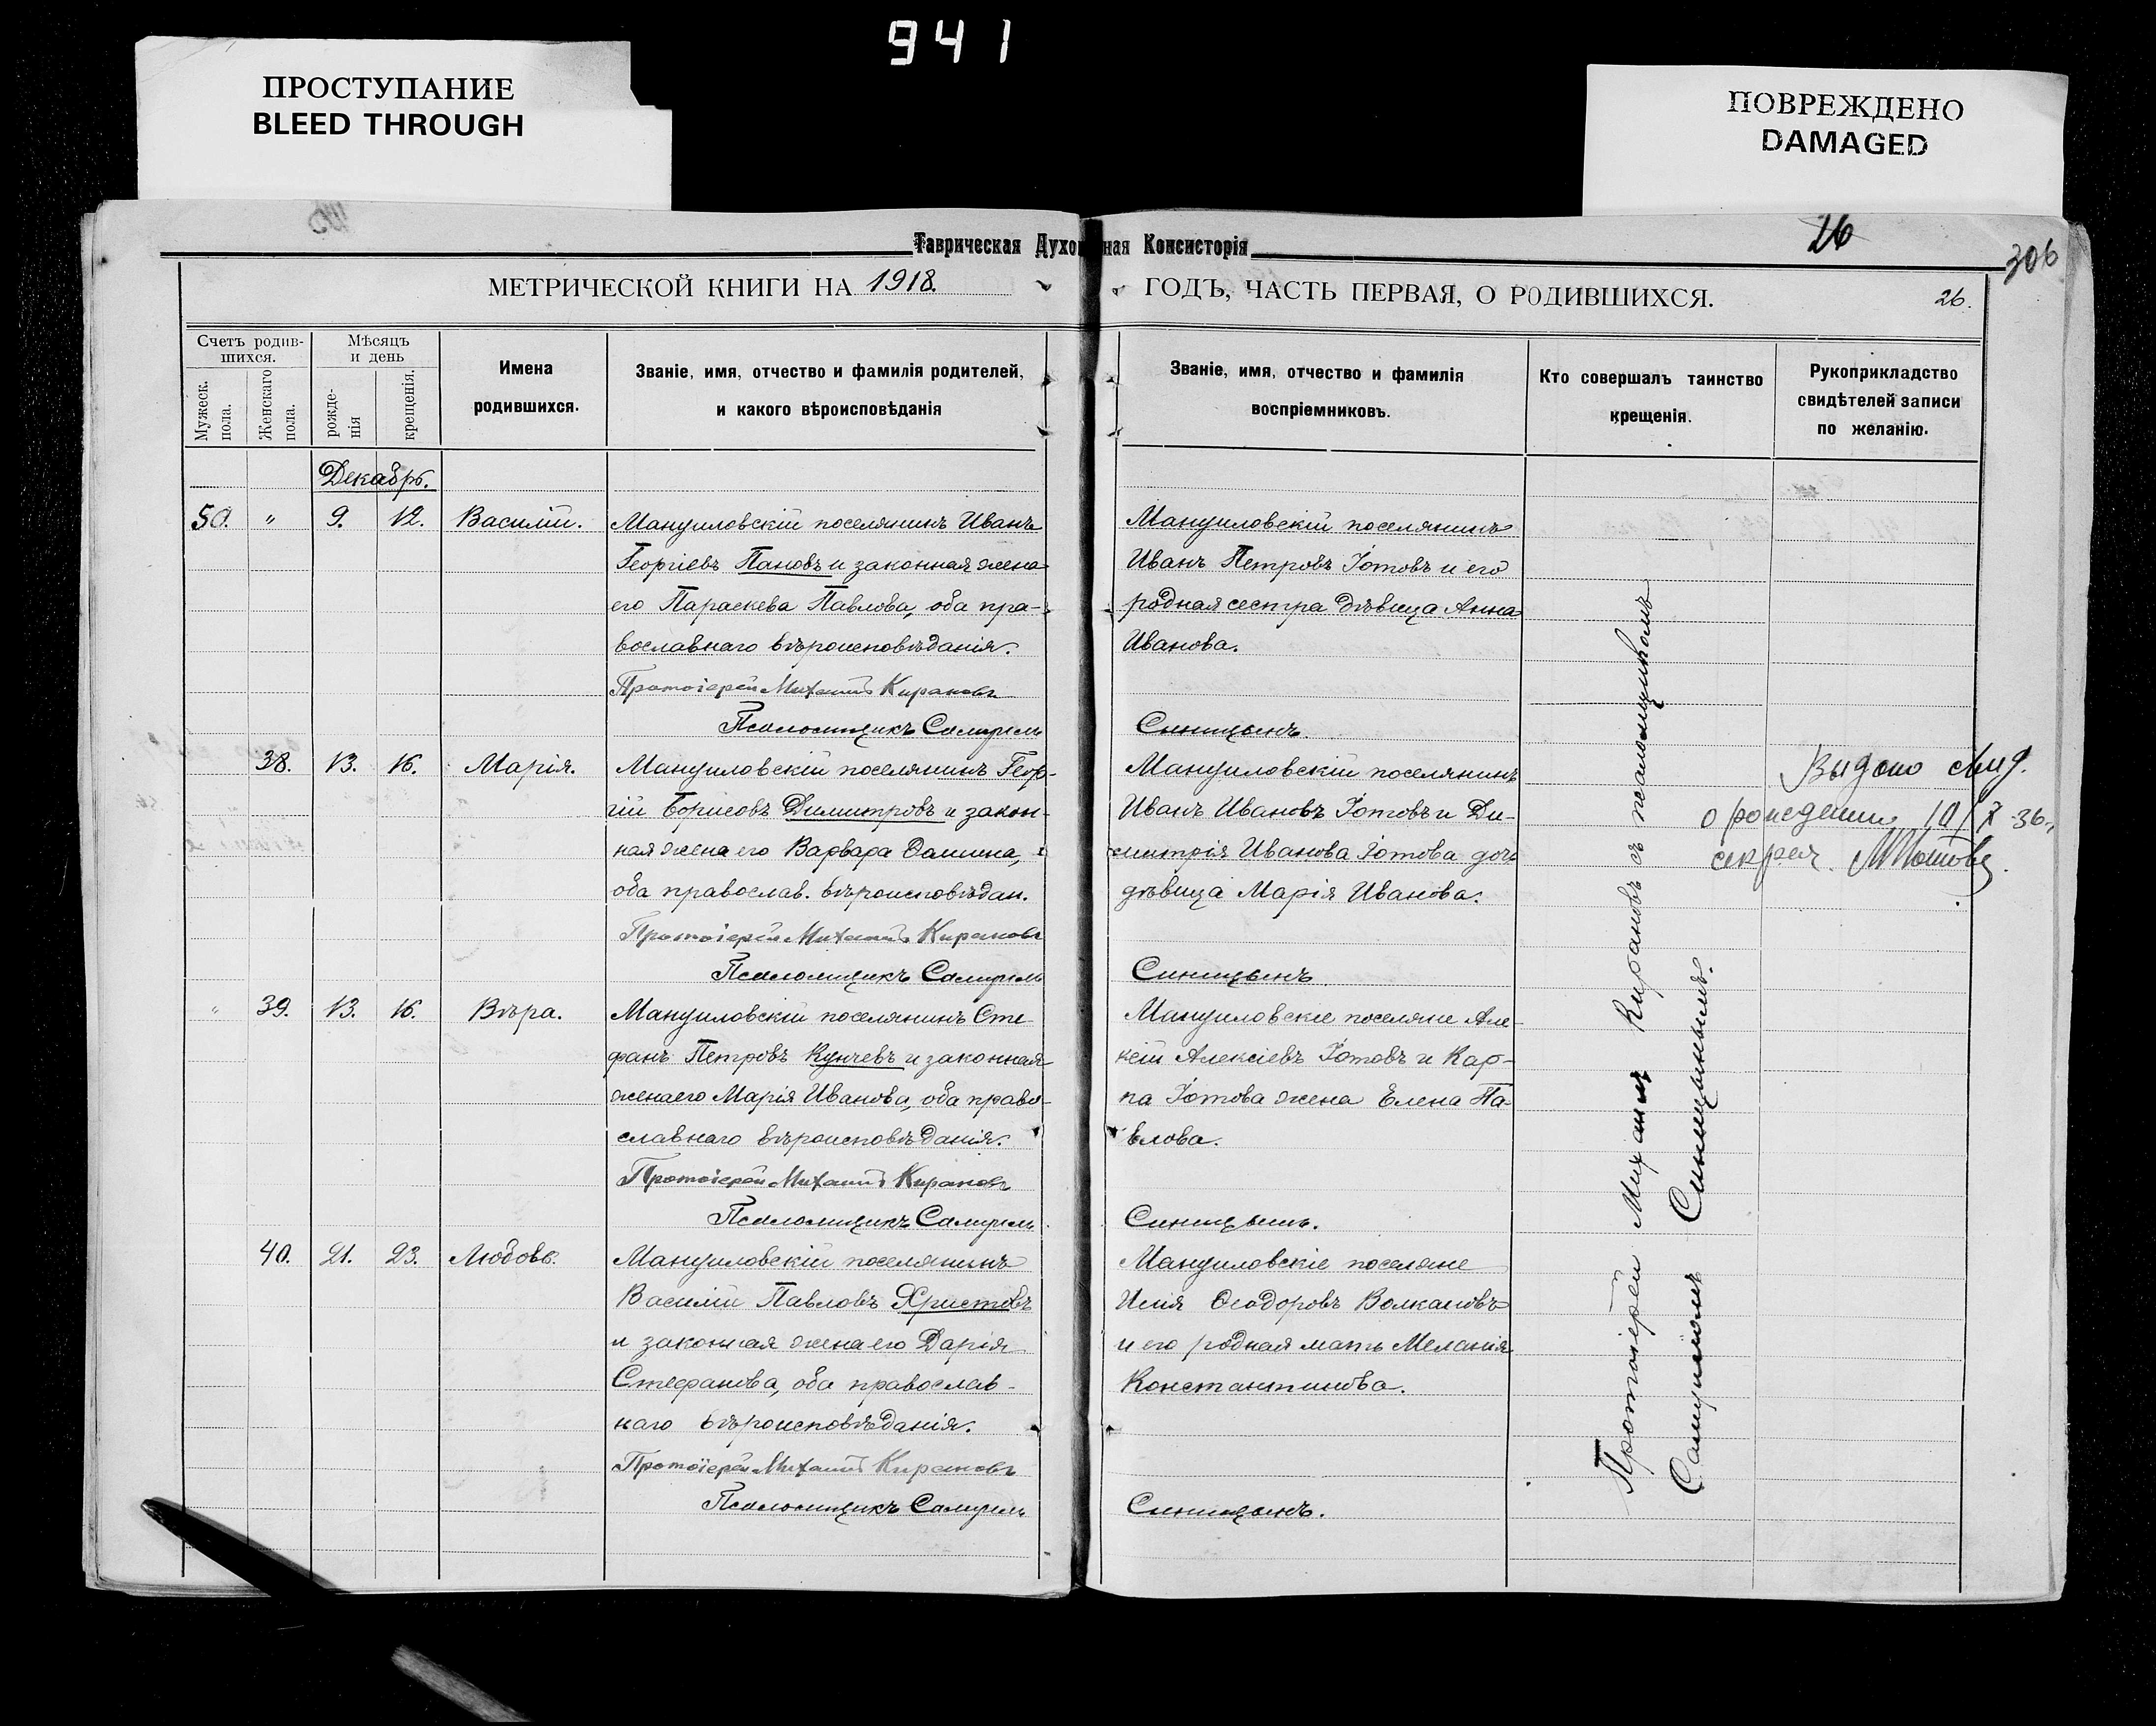 941
ПРОСТУПАНИЕ
BLEED THROUGH
ПОВРЕЖДЕНО
DAMAGED
Таврическая Духовная Консисторія
26
306
МЕТРИЧЕСКОЙ КНИГИ НА 1918. ГОДЪ, ЧАСТЬ ПЕРВАЯ, О РОДИВШИХСЯ.
26.
Счетъ родив-
шихся.
Мужеск.
пола.
Женскаго
пола.
Мѣсяцъ
и день
рожде-
нія
крещенія.
Имена
родившихся.
Званіе, имя, отчество и фамилія родителей,
и какого вѣроисповѣданія
Званіе, имя, отчество и фамилія
воспріемниковъ.
Кто совершалъ таинство
крещенія.
Рукоприкладство
свидѣтелей записи
по желанію.
Декабрь.
50. " 9. 12. Василій.
Мануиловскій поселянинъ Иванъ
Георгіевъ Пановъ и законная жена
его Параскева Павлова, оба пра-
вославнаго вѣроисповѣданія.
Протоіерей Михаилъ Кирановъ
Псаломщикъ Самуилъ Синицынъ.
Мануиловскій поселянинъ
Иванъ Петровъ Іотовъ и его
родная сестра дѣвица Анна
Иванова.
38. 13. 16. Марія.
Мануиловскій поселянинъ Геор-
гій Борисовъ Димитровъ и закон-
ная жена его Варвара
оба православ. вѣроисповѣдан.
Протоіерей Михаилъ Кирановъ
Псаломщикъ Самуилъ Синицынъ
Мануиловскій поселянинъ
Иванъ Ивановъ Іотовъ и Ди-
митрія Иванова Іотова дочь
дѣвица Марія Иванова.
Выдано свид.
о рождении 10/X 36
секрет.
" 39. 13. 16. Вѣра.
Мануиловскій поселянинъ Сте-
фанъ Петровъ Кунчевъ и законная
жена его Марія Иванова, оба право-
славнаго вѣроисповѣданія.
Протоіерей Михаилъ Кирановъ
Псаломщикъ Самуилъ Синицынъ.
Мануиловскіе поселяне Але-
ксій Алексіевъ Іотовъ и Кар-
па Іотова жена Елена Па-
влова.
40. 21. 23. Любовь.
Мануиловскій поселянинъ
Василій Павловъ Христовъ
и законная жена его Дарія
Стефанова, оба православ-
наго вѣроисповѣданія.
Протоіерей Михаилъ Кирановъ
Псаломщикъ Самуилъ Синицынъ.
Мануиловскіе поселяне
Илія Ѳеодоровъ Волкановъ
и его родная мать Меланія
Константинова.
Протоіерей Михаилъ Кирановъ съ псаломщикомъ
Самуиломъ Синицынымъ.